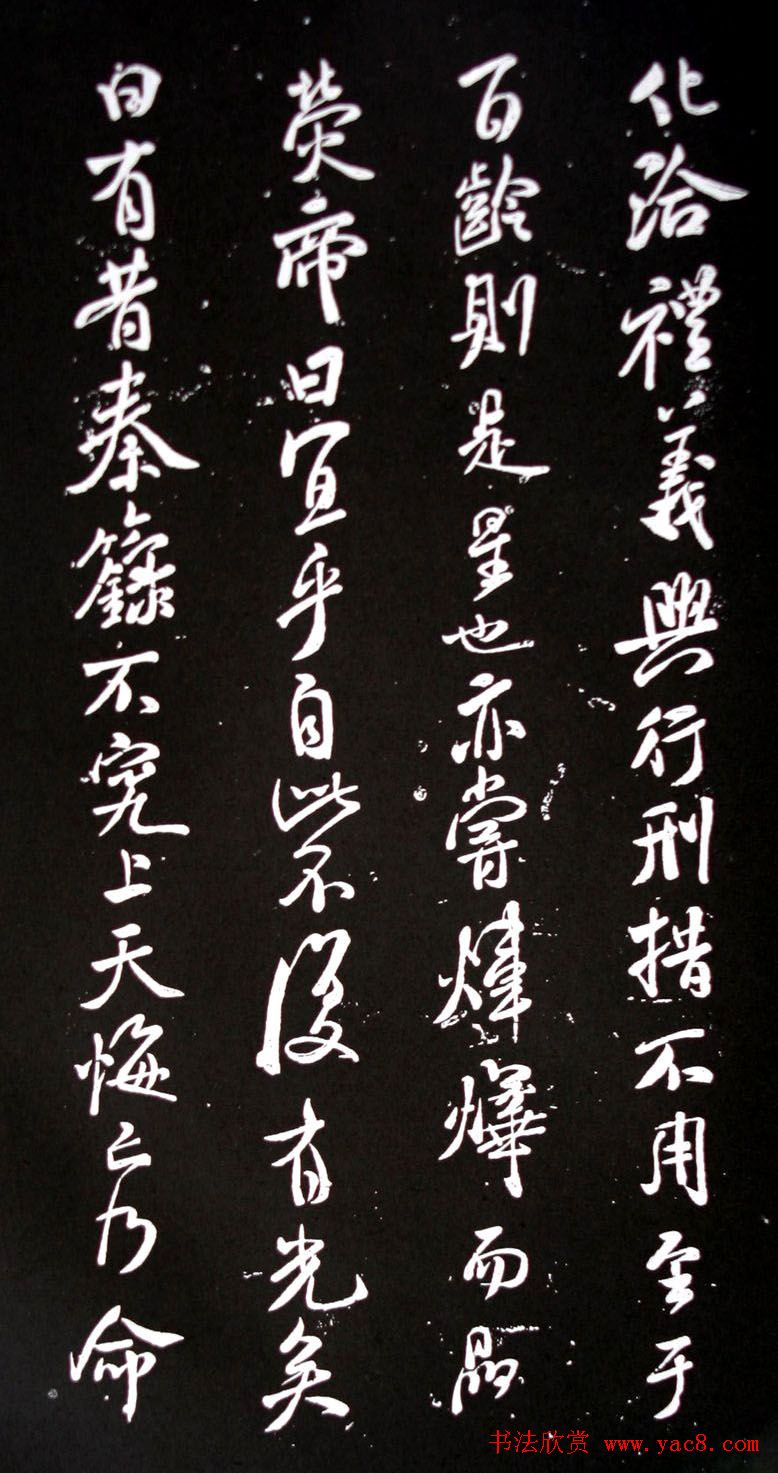 化洽禮義興行刑措不用至于
百齡則是星也亦嘗煒燁而晶
熒帝曰宜乎自此不復有光矣
曰有昔秦籙不究上天悔亡乃命
书法欣赏 www.yac8.com